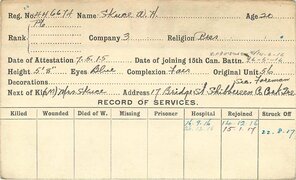 Reg. No. 446674 Name Skuce W. H. Age 20
Rank Pte Company 3 Religion Pres
Date of Attestation 7.5.15 Date of joining 15th Can. Battn.
Height 5'5 Eyes Blue Complexion Fair Original Unit 56
Decorations
Next of Kin (M) Mrs Skuce Address 17 Bridge St Skibbereen Co. Cork Ire
RECORD OF SERVICES.
Killed Wounded Died of W. Missing Prisoner Hospital Rejoined Struck Off
16.9.16 14.12.16
15.1.17 22.8.17